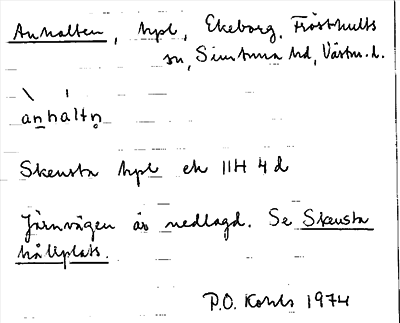 Anhalten, hpl, Ekeborg, Frösthults
sn, Simtuna hd, Västm. l.
ànháltn̥
Skensta hpl ek 11H 4d
Järnvägen är nedlagd. Se Skensta
hållplats.
P.O. Kohls 1974